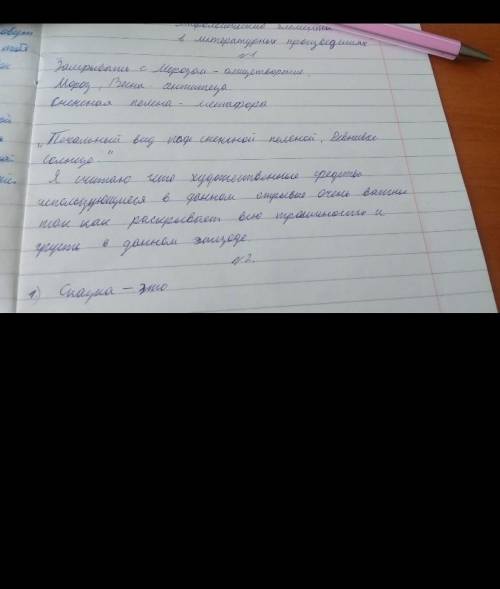 овут
мифологические элементы
в литературных произведениях
№1
Заигрывать с Морозом - олицетворение
Мороз, Весна антитеза
Снежная пелена - метафора
"Печальный вид под снежной пеленой, Ревнивое
солнце"
Я считаю что художественные средства
использующиеся в данном отрывке очень важны
так как раскрывает всю трагичность и
грусть в данном эпизоде.
№2.
1) Сказка - это